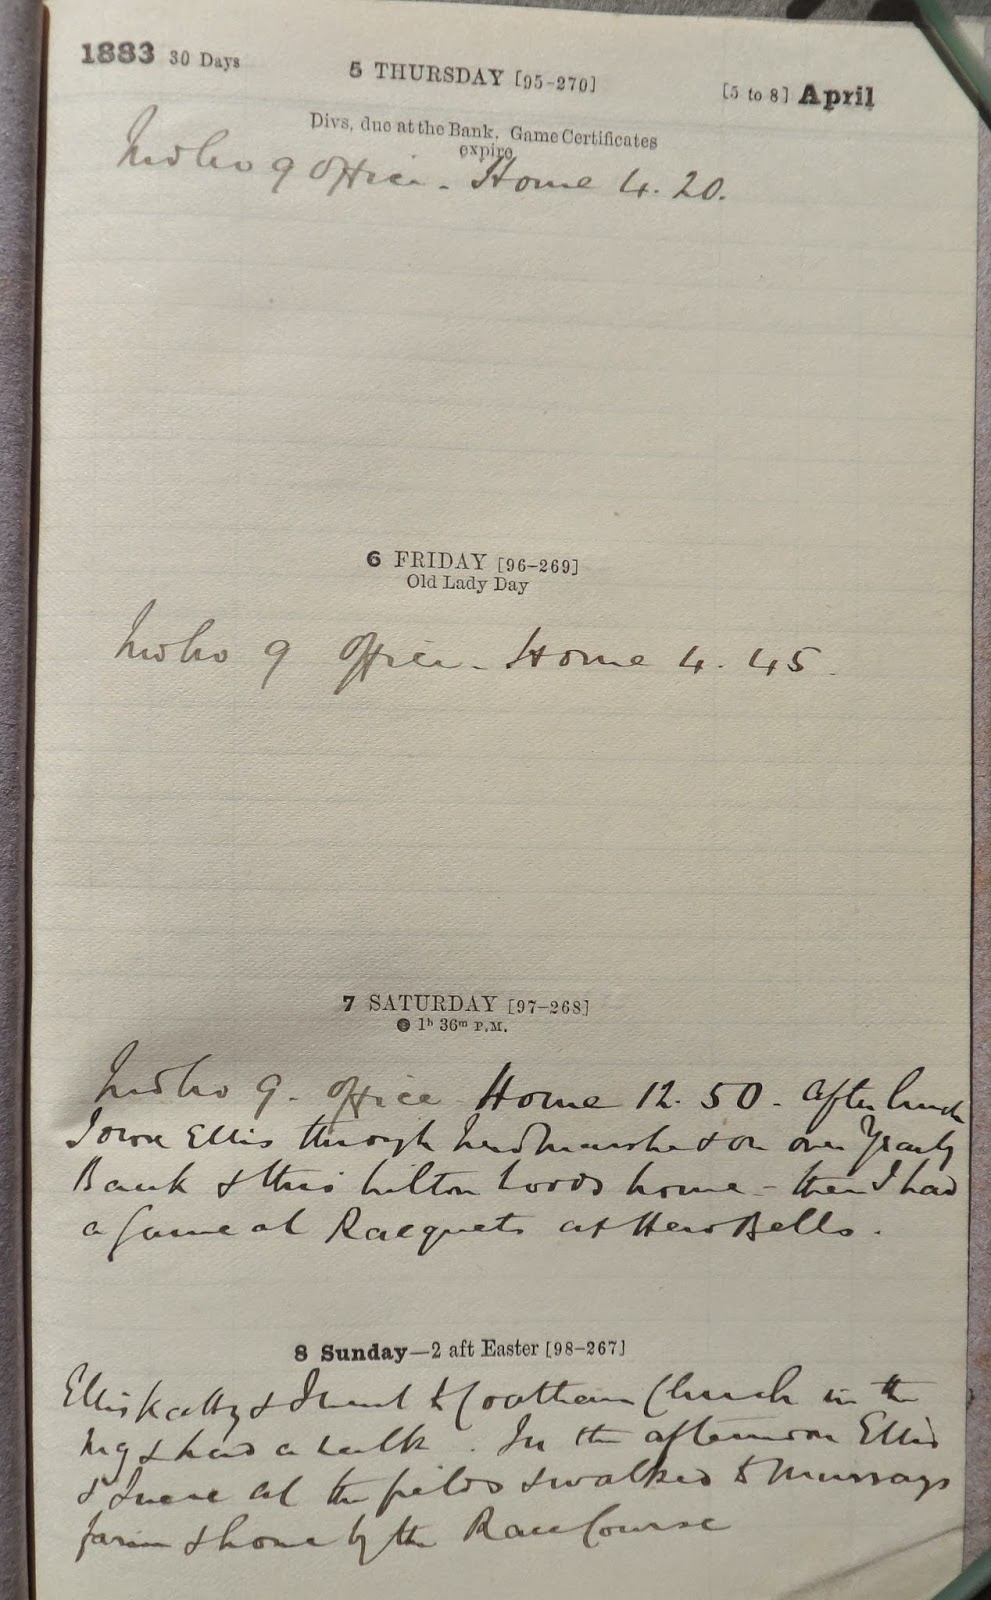 1883 30 Days 5 THURSDAY [95-270] [5 to 8] April
Divs, due at the Bank. Game Certificates
expire
9 Office. Home 4.20.
6 FRIDAY [96-269]
Old Lady Day
9 Office. Home 4.45.
7 SATURDAY [97-268]
1h 36m P.M.
9. Office Home 12.50. after lunch
Ellis through & on over Yearby
Bank & this Wilton Woods home - then I had
a Game at Racquets at Hew Bells.
8 Sunday—2 aft Easter [98-267]
Ellis Katty & I went to Coatham Church in the
Mg & had a walk. In the afternoon Ellis
& I were at the fields & walked to Murrays
farm & home by the Race Course